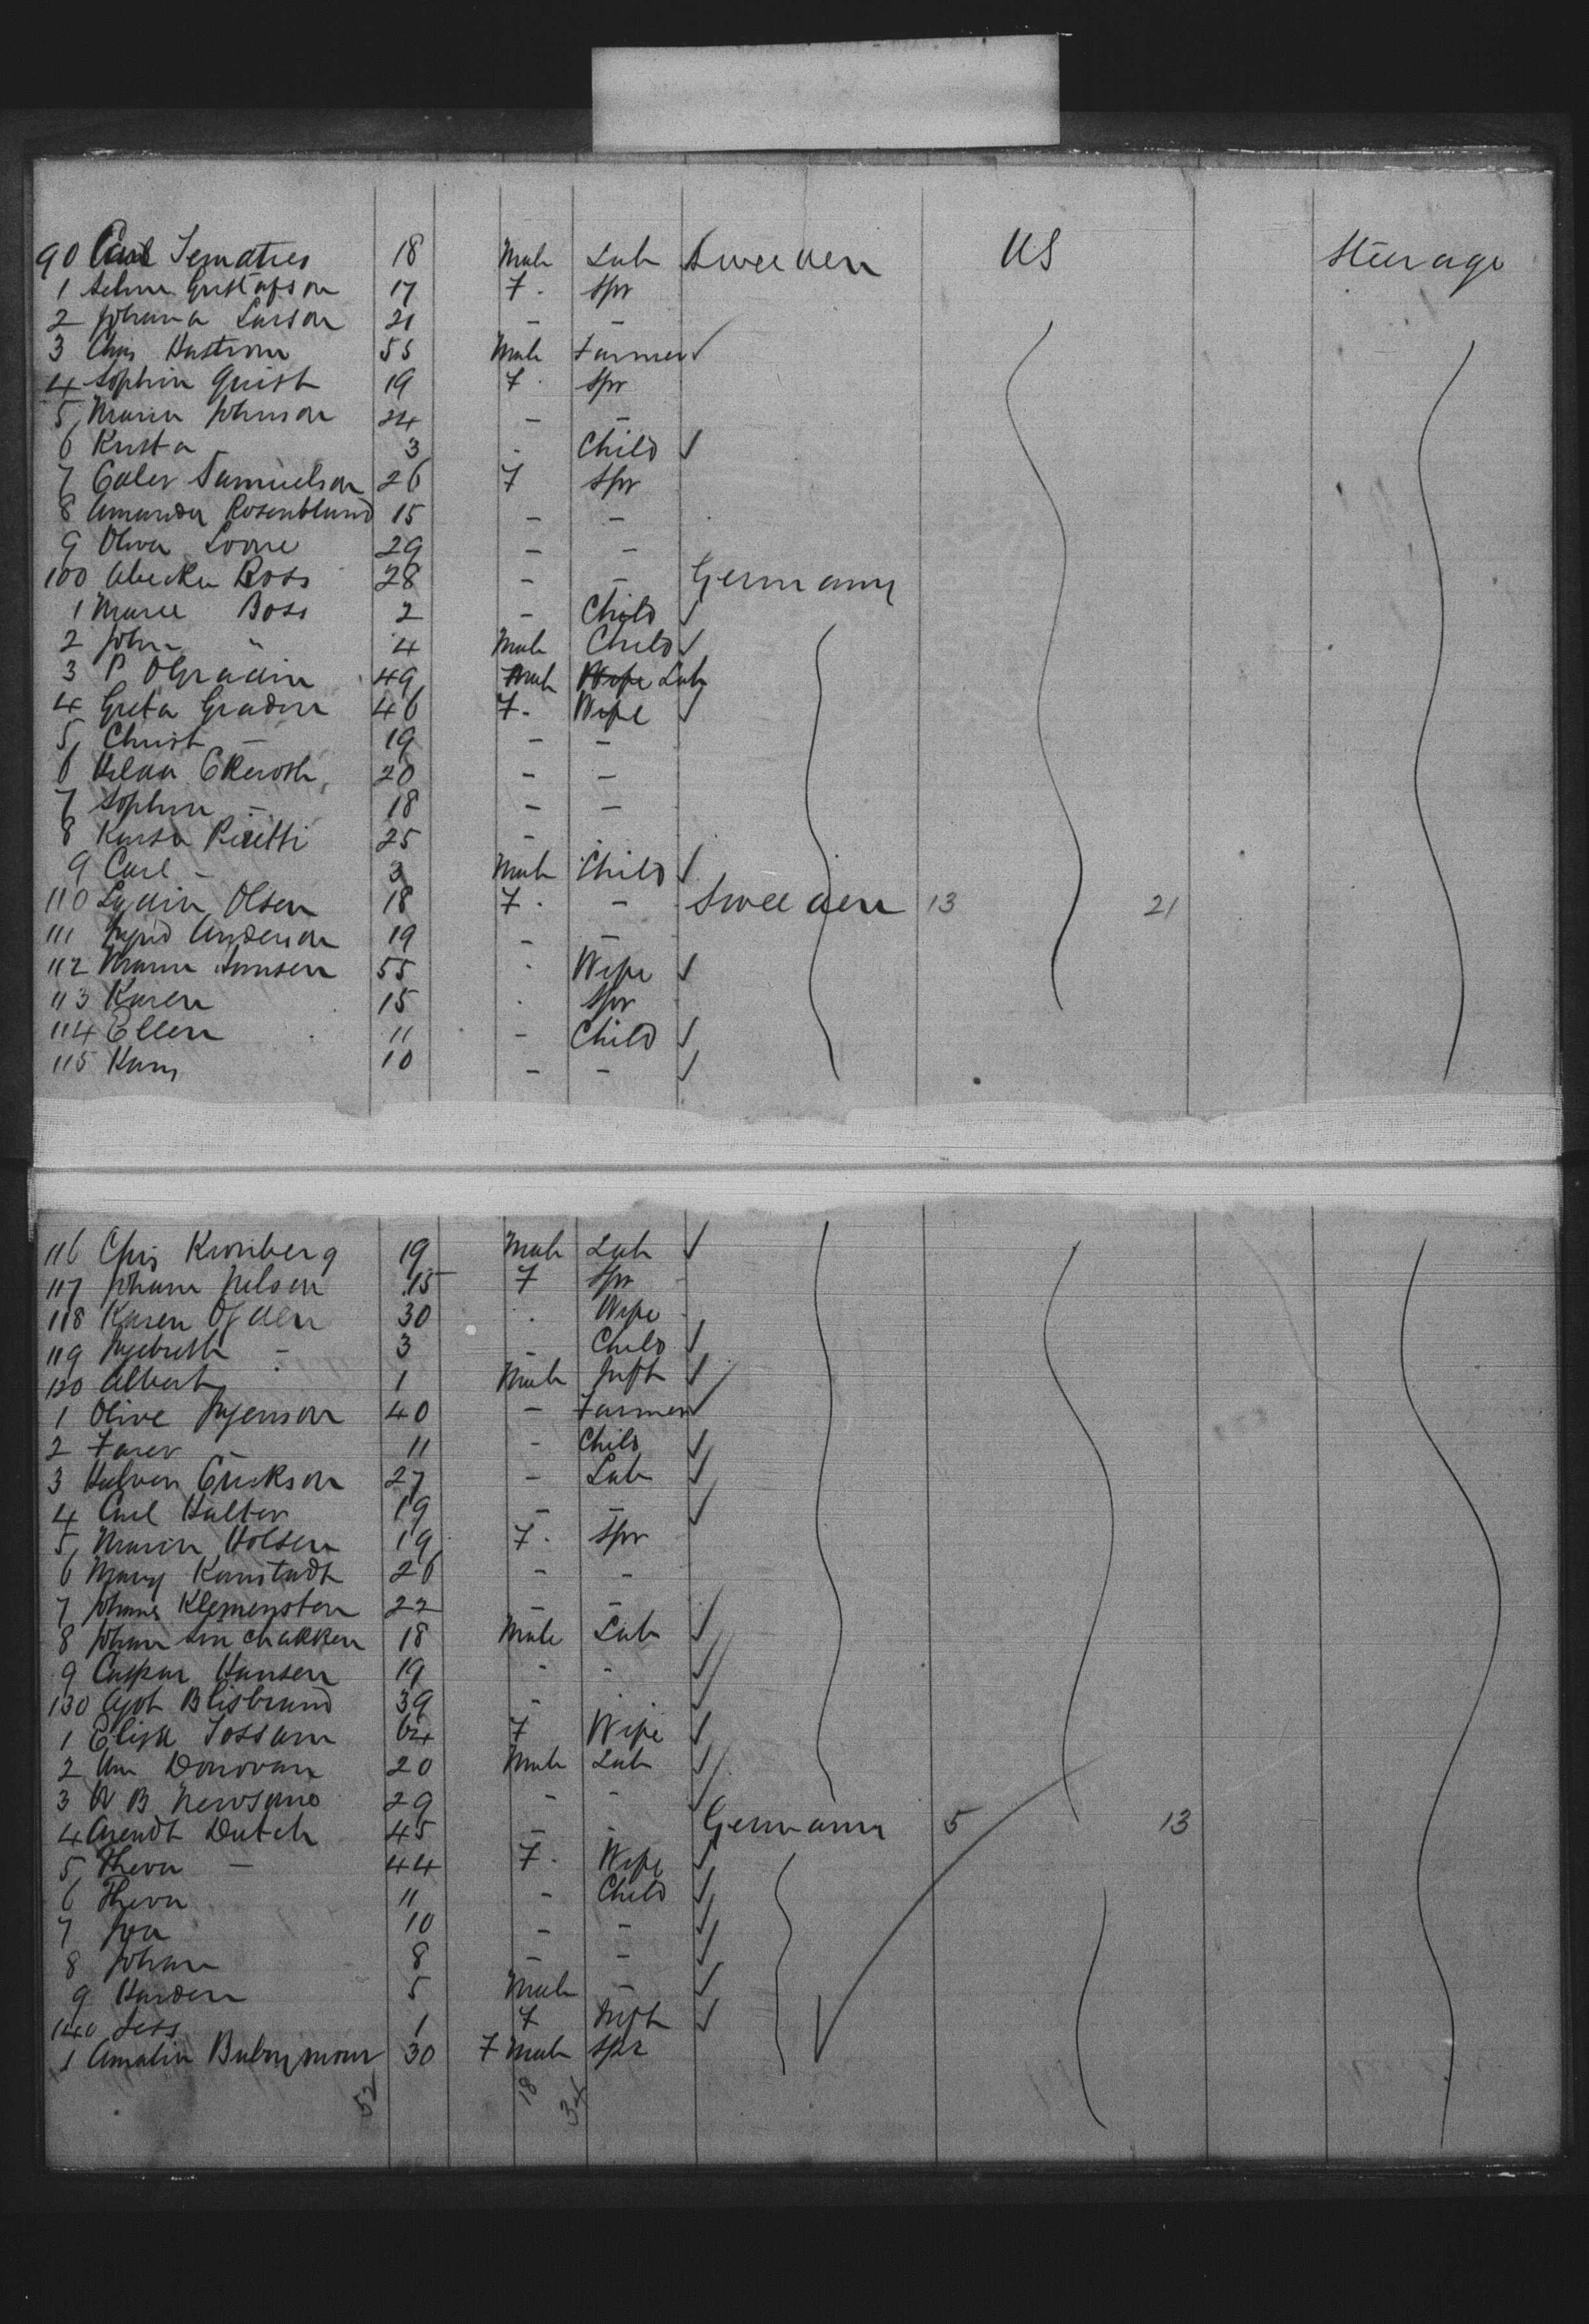 90 Carl Sematies 18 Male Lab Sweeden US Steerage
1 Selma Gustafson 17 F. Spr
2 Johana Larson 21 - -
3 Chas Hastrom 55 Male Farmer ✓
4 Sophia Quist 19 F. Spr
5 Maria Johnson 24 - -
6 Krista 3 . Child ✓
7 Samuelson 26 F Spr
8 Amanda Rosenblund 15 - -
9 Oliva 29 - -
100 Boss 28 - - Germany
1 Marie Boss 2 - Child ✓
2 John " 4 Male Child ✓
3 P OGradin 49 Male Lab
4 Greta Gradin 46 F. Wife ✓
5 Christ - 19 - -
6 Hilda Ekeroth 20 - -
7 Sophia - 18 - -
8 25 -
9 Carl - 3 Male Child ✓
110 Lydia Olsen 18 F. - Sweeden 13 21
111 Ingrid Anderson 19 - -
112 Maria 55 . Wife ✓
113 Karen 15 . Spr
114 Ellen 11 - Child ✓
115 10 - - ✓
116 Chris Kronberg 19 Male Lab ✓
117 Johana Nelson 15 F Spr -
118 Karen 30 . Wife
119 - 3 - Child ✓
120 Albert 1 Male Inft ✓
1 Olive 40 - Farmer ✓
2 - 11 - Child ✓
3 Halvor Erickson 27 - Lab ✓
4 Carl Halter 19 - - ✓
5 Maria Holsen 19 F. Spr
6 Mary Kamstadt 26 - -
7 Klemenston 22 - -
8 Johan 18 Male Lab ✓
9 Caspar Hansen 19 - - ✓
130 39 - . ✓
1 Eliza Tossam 64 F Wife ✓
2 Wm Donovan 20 Male Lab ✓
3 W B Newsome 29 - - ✓
4 Arendt Dutch 45 - - Germany 5 13
5 - 44 F. Wife ✓
6 11 - Child ✓
7 10 - - ✓
8 Johan 8 - - ✓
9 5 Male - ✓
140 1 F Inft ✓
1 Amalia 30 F Male Spr
52 18 34